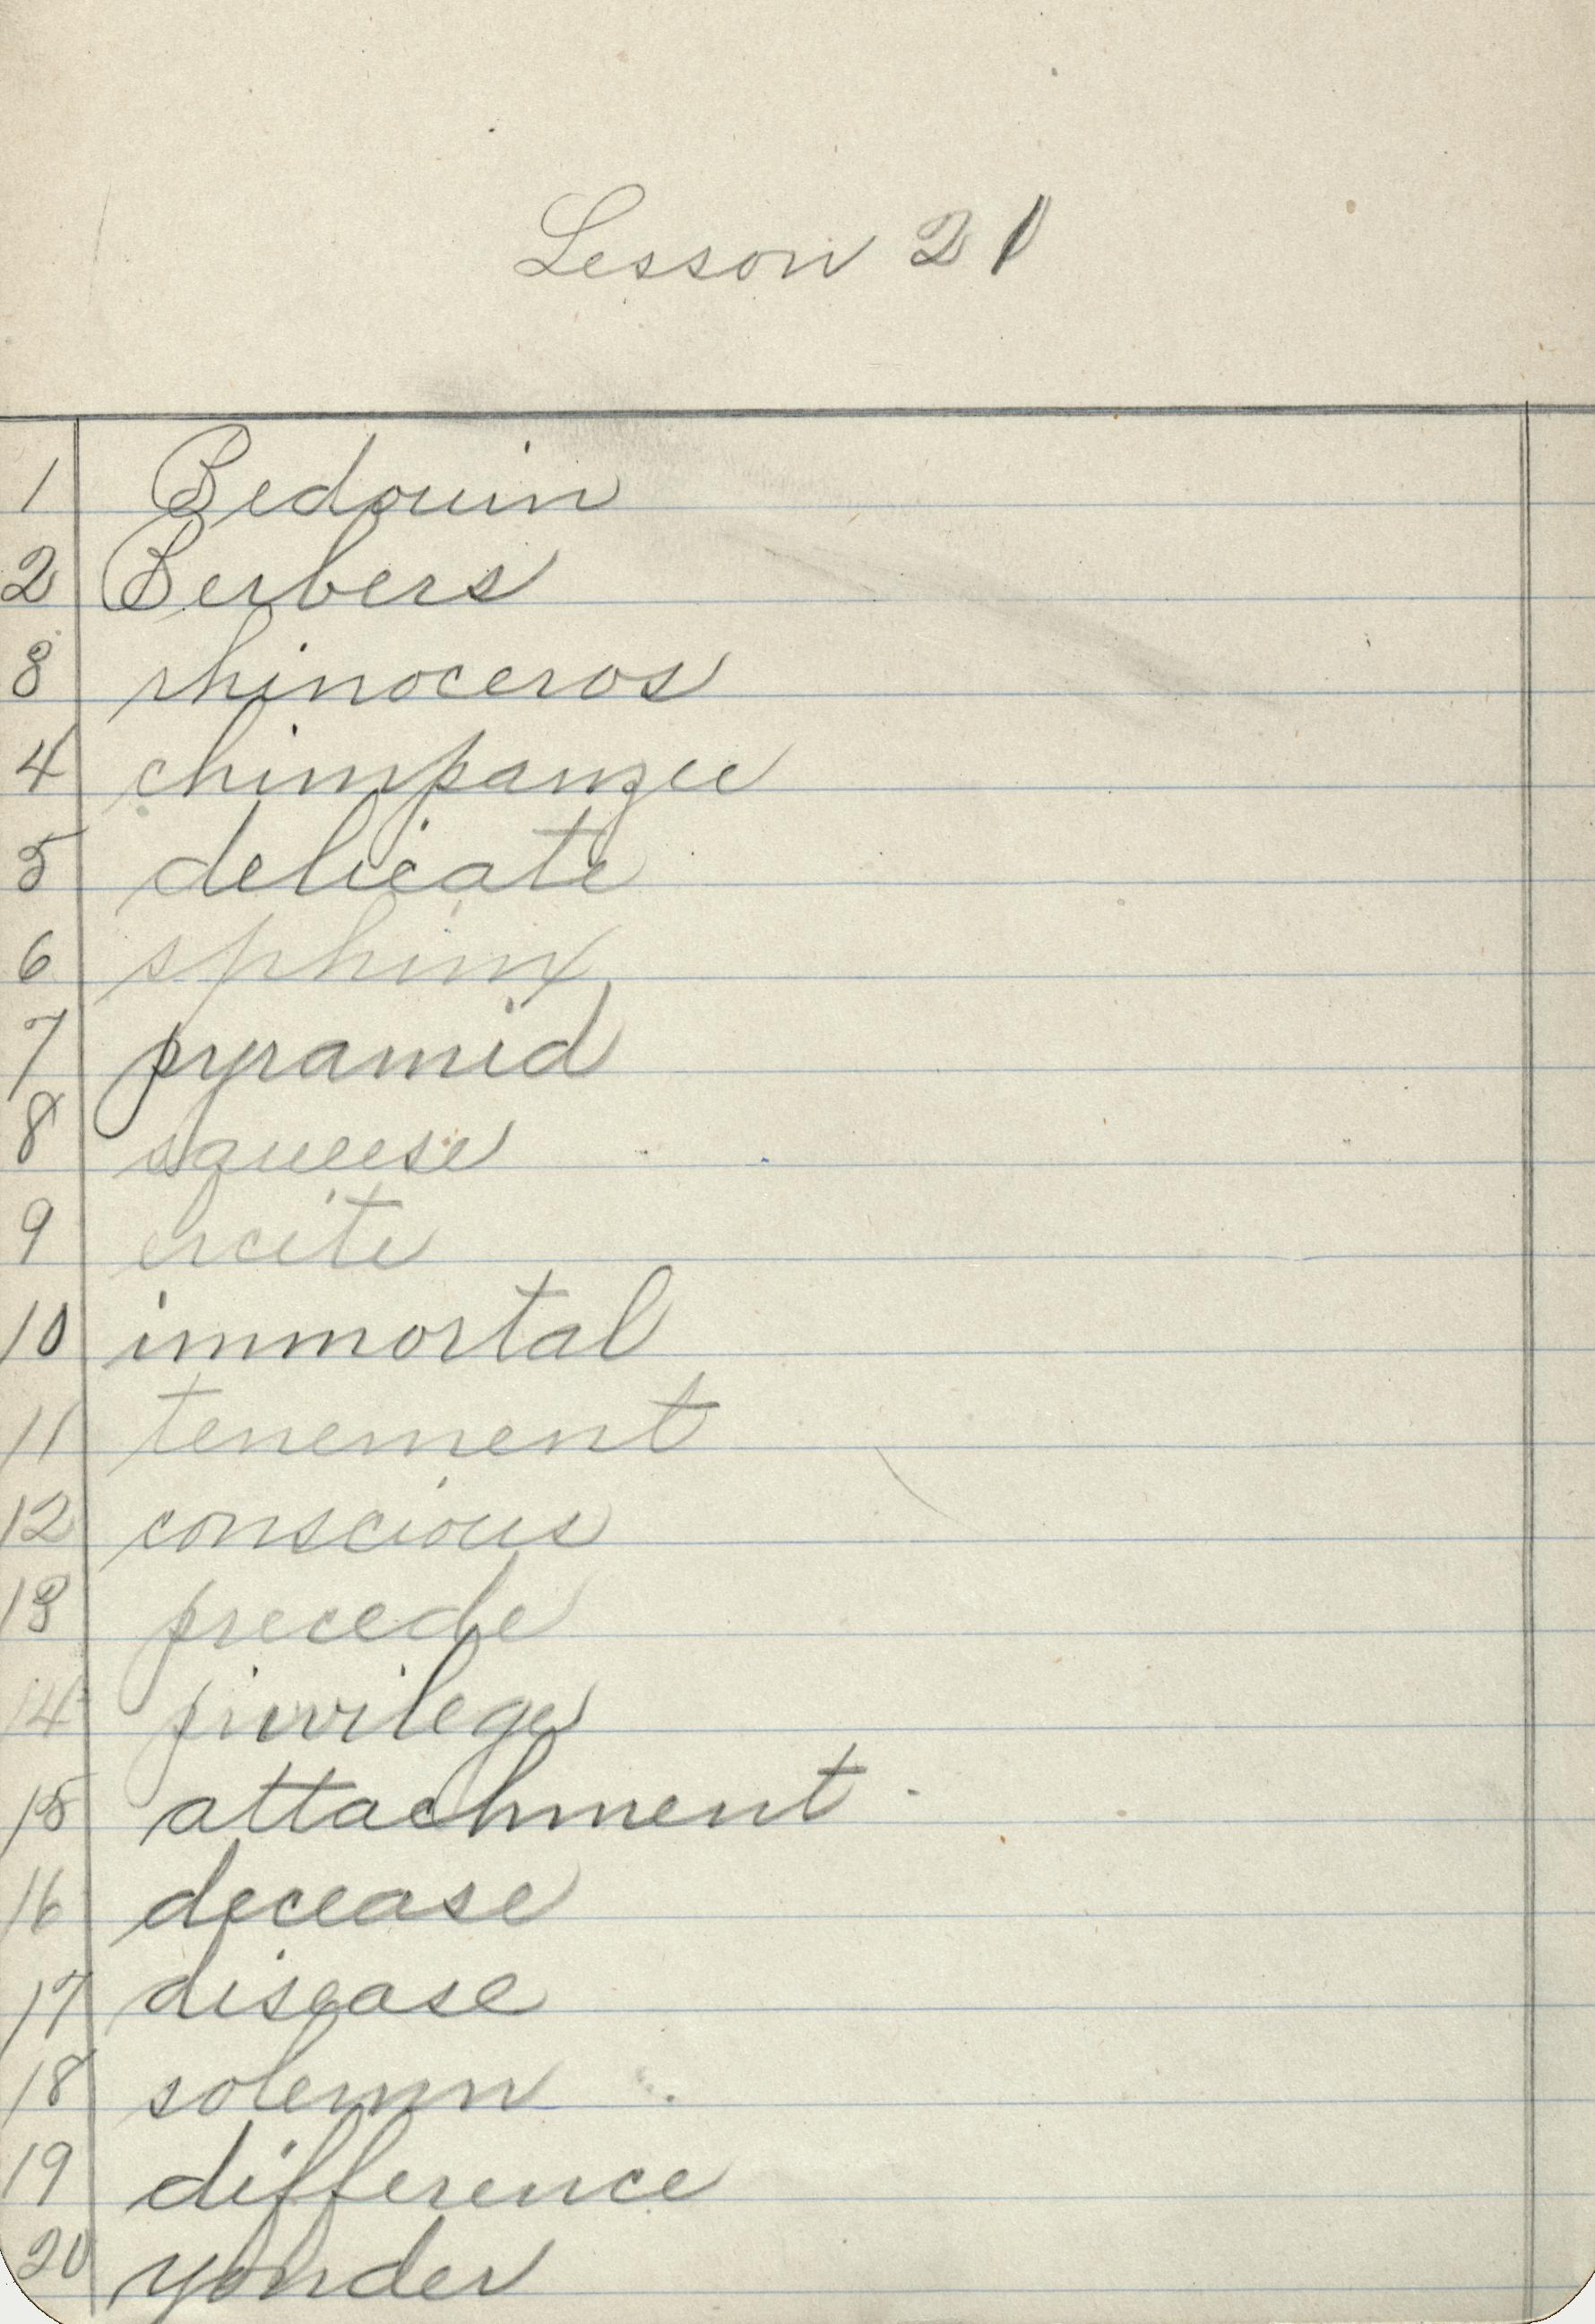 Lesson 21
1 Bedouin
2 Berbers
3 rhinoceros
4 chimpanzee
5 delicate
6 sphinx
7 pyramid
8 squeese
9 excite
10 immortal
11 tenement
12 conscious
13 precede
14 privilege
15 attachment
16 decease
17 disease
18 solemn
19 difference
20 yonder